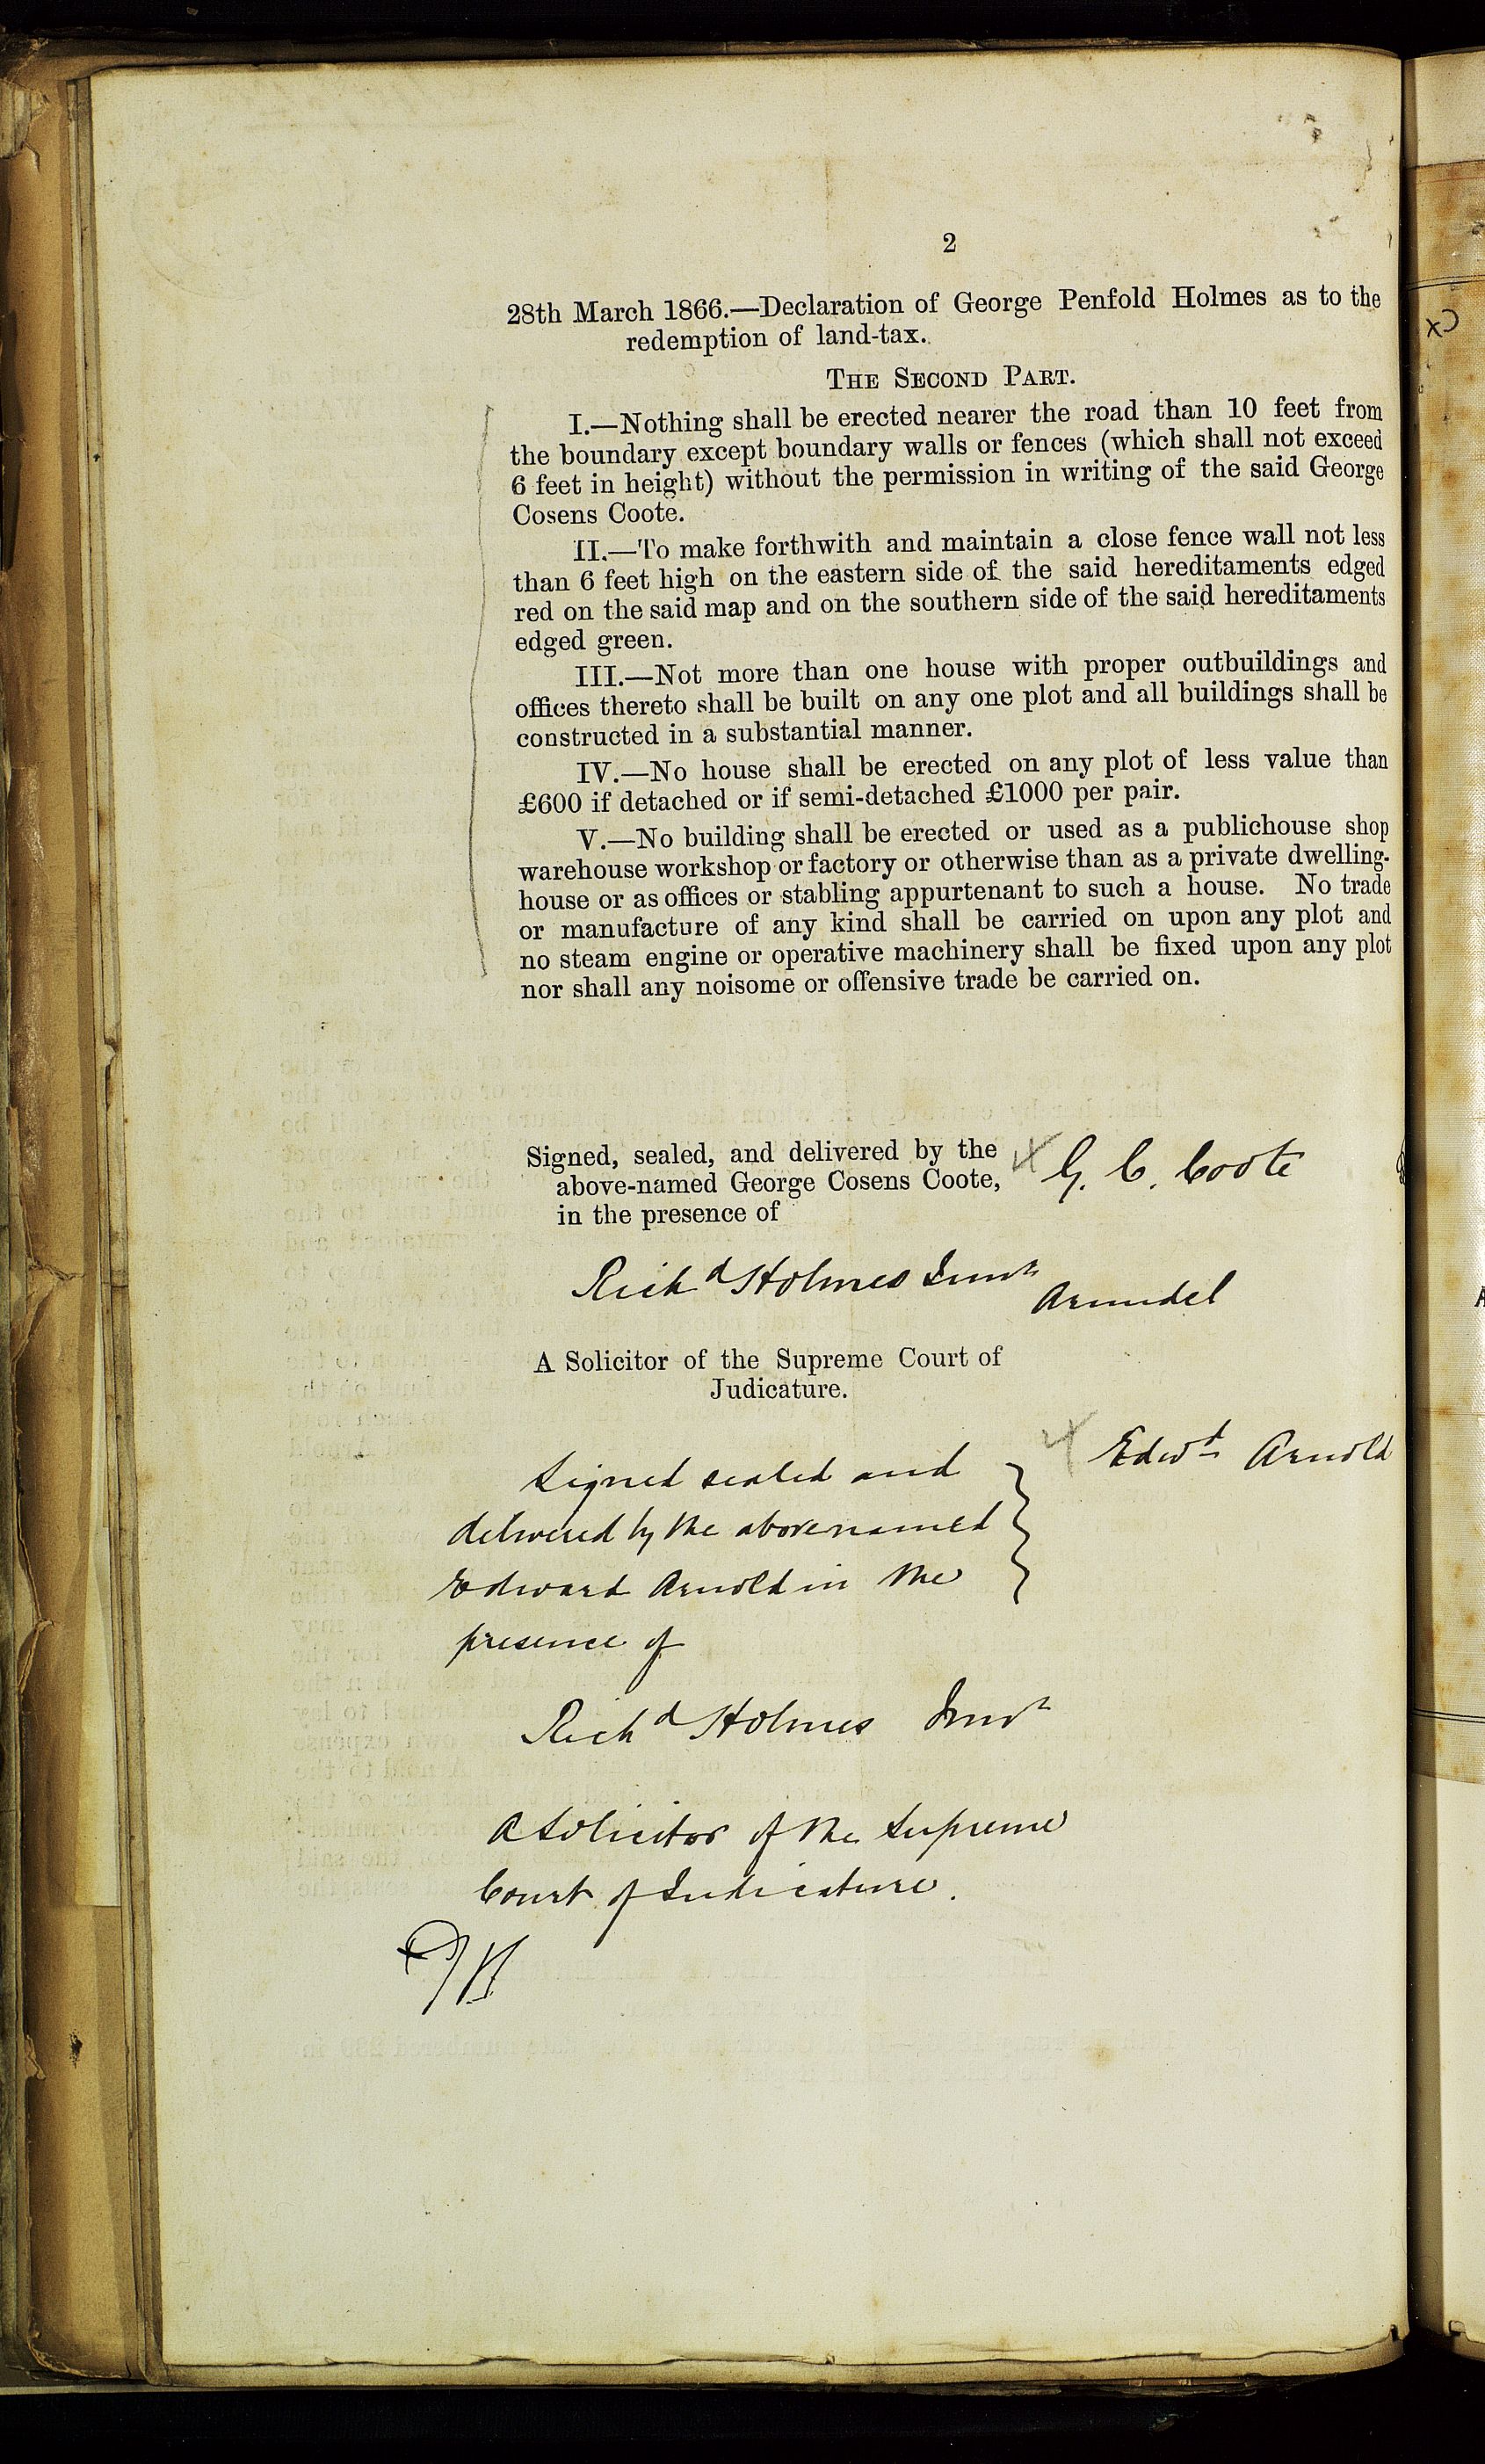 2
28th March 1866.—Declaration of George Penfold Holmes as to the
redemption of land-tax.
THE SECOND PART.
I.—Nothing shall be erected nearer the road than 10 feet from
the boundary except boundary walls or fences (which shall not exceed
6 feet in height) without the permission in writing of the said George
Cosens Coote.
II.—To make forthwith and maintain a close fence wall not less
than 6 feet high on the eastern side of the said hereditaments edged
red on the said map and on the southern side of the said hereditaments
edged green.
III.—Not more than one house with proper outbuildings and
offices thereto shall be built on any one plot and all buildings shall be
constructed in a substantial manner.
IV.—No house shall be erected on any plot of less value than
£600 if detached or if semi-detached £1000 per pair.
V.—No building shall be erected or used as a publichouse shop
warehouse workshop or factory or otherwise than as a private dwelling-
house or as offices or stabling appurtenant to such a house. No trade
or manufacture of any kind shall be carried on upon any plot and
no steam engine or operative machinery shall be fixed upon any plot
nor shall any noisome or offensive trade be carried on.
Signed, sealed, and delivered by the
above-named George Cosens Coote,
in the presence of
G. C. Coote
Richd Holmes Junr
Arundel
A Solicitor of the Supreme Court of
Judicature.
Signed sealed and
delivered by the abovenamed
Edward Arnold in the
presence of
Edwd Arnold
Richd Holmes Junr
A Solicitor of the Supreme
Court of Judicature.